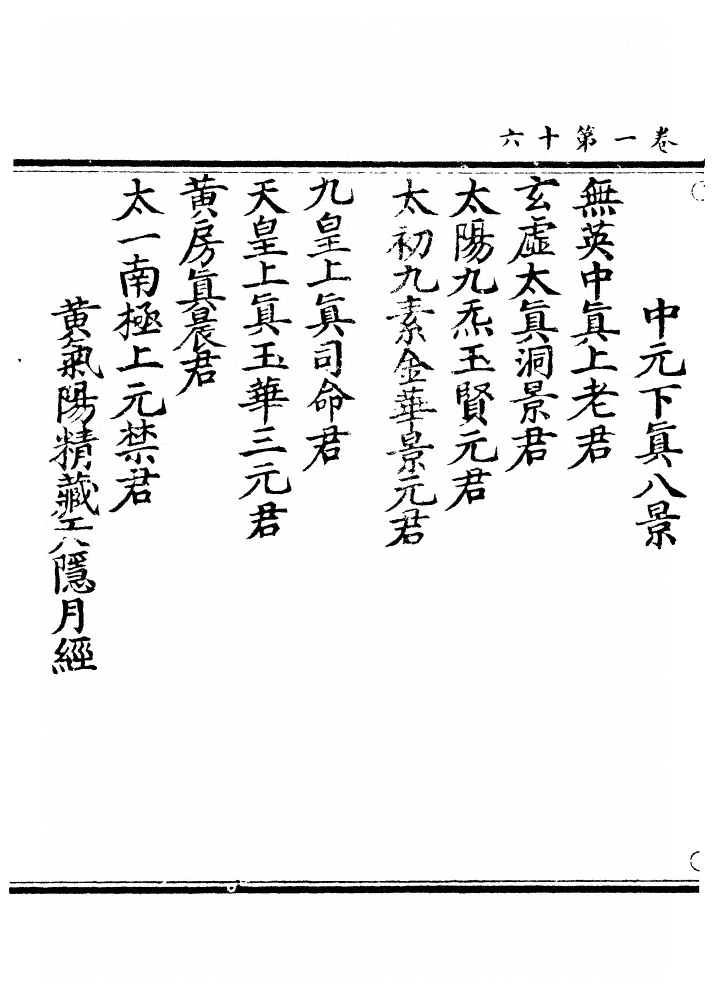 卷一第十六
中元下眞八景
無英中眞上老君
玄虛太眞洞景君
太陽九炁玉賢元君
太初九素金華景元君
九皇上眞司命君
天皇上眞玉華三元君
黄房眞晨君
太一南極上元禁君
黄氣陽精藏天隱月經